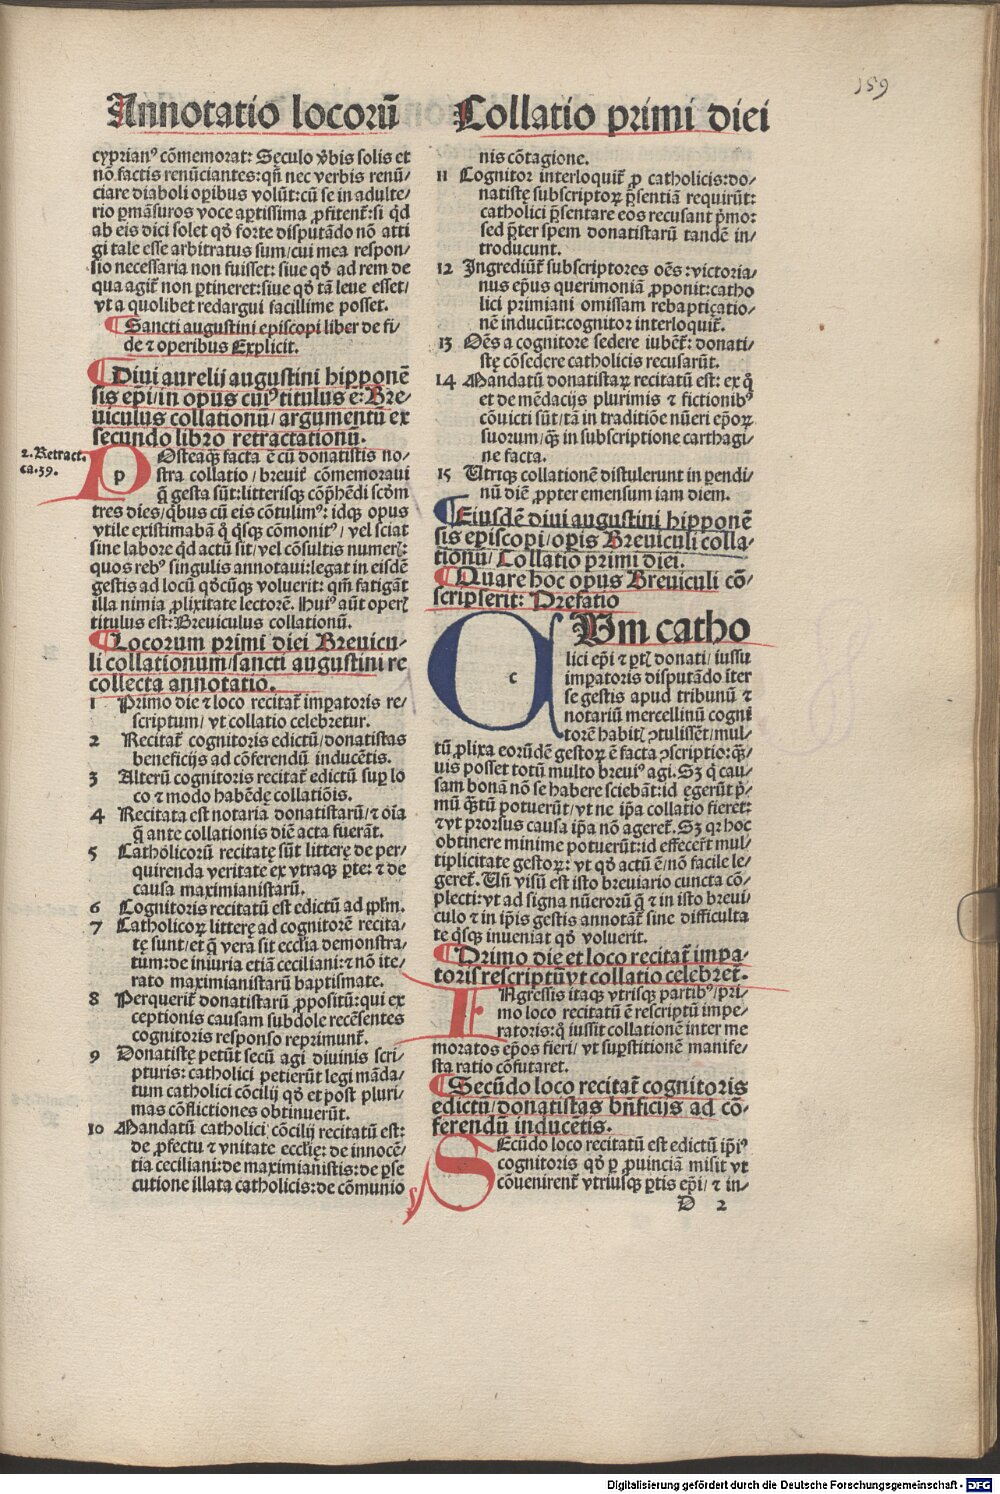 159
Annotatio locorū
Collatio primi diei
cyprianꝰ cōmemorat: Sęculo v̄bis solis et
nō factis renūciantes: qn̄ nec verbis renū/
ciare diaboli oꝑibus volūt: cū se in adulte/
rio ꝑmāsuros voce aꝑtissima ꝓfitent᷑: si qd̓
ab eis dici solet qd̓ forte disputādo nō atti
gi tale esse arbitratus sum/cui mea respon/
sio necessaria non fuisset: siue qd̓ ad rem de
qua agit᷑ non ꝑtineret: siue qd̓ tā leue esset/
vt a quolibet redargui facillime posset.
¶ Sancti augustini episcopi liber de fi/
de ⁊ operibus Explicit.
¶ Diui aurelij augustini hipponē
sis ep̄i/in opus cuiꝰ titulus ē: Bre/
uiculus collationū/argumentū ex
secundo libro retractationū.
2. Retract.
ca. 39.
p
Osteaqꝫ facta ē cū donatistis no/
stra collatio/breuit᷑ cōmemoraui
q̄ gesta sūt: litterisqꝫ cōp̄hēdi scd̓m
tres dies/qbus cū eis cōtulimꝰ: idqꝫ opus
vtile existimabā q̇ q̇sqꝫ cōmonitꝰ/vel sciat
sine labore qd̓ actū sit/vel cōsultis numeri̓:
quos rebꝰ singulis annotaui: legat in eisdē
gestis ad locū qd̓cūqꝫ voluerit: qm̄ fatigāt
illa nimia ꝓlixitate lectorē. Huiꝰ aūt oꝑi̓
titulus est: Breuiculus collationū.
¶ Locorum primi diei Breuicu/
li collationum/sancti augustini re
collecta annotatio.
1 Primo die ⁊ loco recitat᷑ imꝑatoris re/
scriptum/vt collatio celebretur.
2 Recitat᷑ cognitoris edictū/donatistas
beneficijs ad cōferendū inducētis.
3 Alterū cognitoris recitat᷑ edictū suꝑ lo
co ⁊ modo habēdę collatiōis.
4 Recitata est notaria donatistarū/⁊ oīa
q̄ ante collationis diē acta fuerāt.
5 Catholicorū recitatę sūt litterę de per/
quirenda veritate ex vtraqꝫ ꝑte: ⁊ de
causa maximianistarū.
6 Cognitoris recitatū est edictū ad pp̄lm̄.
7 Catholicoꝝ litterę ad cognitorē recita/
tę sunt/et q̄ vera sit eccl̄ia demonstra/
tum: de iniuria etiā ceciliani: ⁊ nō ite/
rato maximianistarū baptismate.
8 Perquerit᷑ donatistarū ꝓpositū: qui ex
ceptionis causam subdole recēsentes
cognitoris responso reprimunt᷑.
9 Donatistę petūt secū agi diuinis scri/
pturis: catholici petierūt legi māda/
tum catholici cōcilij qd̓ et post pluri/
mas cōflictiones obtinuerūt.
10 Mandatū catholici cōcilij recitatū est:
de ꝓfectu ⁊ vnitate eccl̄ię: de innocē/
tia ceciliani: de maximianistis: de ꝑse
cutione illata catholicis: de cōmunio
nis cōtagione.
11 Cognitor interloquit᷑ ꝓ catholicis: do/
natistę subscriptoꝝ p̄sentiā requirūt:
catholici p̄sentare eos recusant p̄mo:
sed p̄ter spem donatistarū tandē in/
troducunt.
12 Ingrediūt᷑ subscriptores oēs: victoria/
nus ep̄us querimoniā ꝓponit: catho
lici primiani omissam rebaptiçatio/
nē inducūt: cognitor interloquit᷑.
13 Oēs a cognitore sedere iubēt᷑: donati/
stę cōsedere catholicis recusarūt.
14 Mandatū donatistaꝝ recitatū est: ex q̇
et de mēdacijs plurimis ⁊ fictionibꝰ
cōuicti sūt/tā in traditiōe nūeri ep̄oꝝ
suorum/qꝫ in subscriptione carthagi/
ne facta.
15 Utriqꝫ collationē distulerunt in ꝑendi/
nū diē ꝓpter emensum iam diem.
¶ Eiusdē diui augustini hipponē
sis episcopi/oꝑis Breuiculi colla/
tionū/Collatio primi diei.
¶ Quare hoc opus Breuiculi cō/
scripserit: Prefatio
c
Vm catho
lici ep̄i ⁊ ꝑti̓ donati/iussu
imꝑatoris disputādo īter
se gestis apud tribunū ⁊
notariū mercellinū cogni
torē habiti̓ ꝯtulissēt/mul/
tū ꝓlixa eorūdē gestoꝝ ē facta ꝯscriptio: qꝫ/
uis posset totū multo breuiꝰ agi. Sꝫ q̇ cau/
sam bonā nō se habere sciebāt: id egerūt p̄/
mū qꝫtū potuerūt/vt ne ip̄a collatio fieret:
⁊ vt prorsus causa ip̄a nō ageret᷑. Sꝫ qr hoc
obtinere minime potuerūt: id effecer̄t mul/
tiplicitate gestoꝝ: vt qd̓ actū ē/nō facile le/
geret᷑. Vn̄ visū est isto breuiario cuncta cō/
plecti: vt ad signa nūerorū q̄ ⁊ in isto breui/
culo ⁊ in ip̄is gestis annotat᷑ sine difficulta
te q̇sqꝫ inueniat qd̓ voluerit.
¶ Primo die et loco recitat᷑ impa/
toris rescriptū vt collatio celebret᷑.
I
Ngressis itaqꝫ vtrisqꝫ partibꝰ/pri/
mo loco recitatū ē rescriptū impe/
ratoris: q̇ iussit collationē inter me
moratos ep̄os fieri/vt suꝑstitionē manife/
sta ratio cōfutaret.
¶ Secūdo loco recitat᷑ cognitoris
edictū/donatistas bn̄ficijs ad cō/
ferendū inducētis.
S
Ecūdo loco recitatū est edictū ip̄iꝰ
cognitoris qd̓ ꝑ ꝓuinciā misit vt
cōuenirent᷑ vtriusqꝫ ꝑtis ep̄i/⁊ in/
D 2
Digitalisierung gefördert durch die Deutsche Forschungsgemeinschaft - DFG